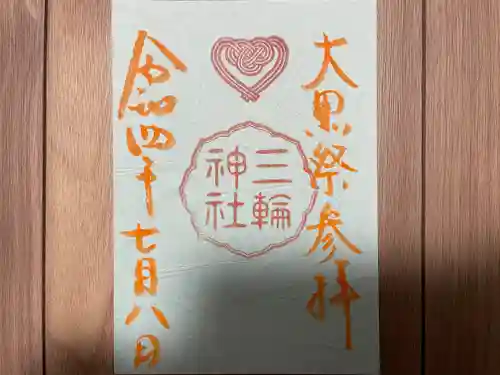 大黒祭参拝
三輪
神社
令和四年七月八日